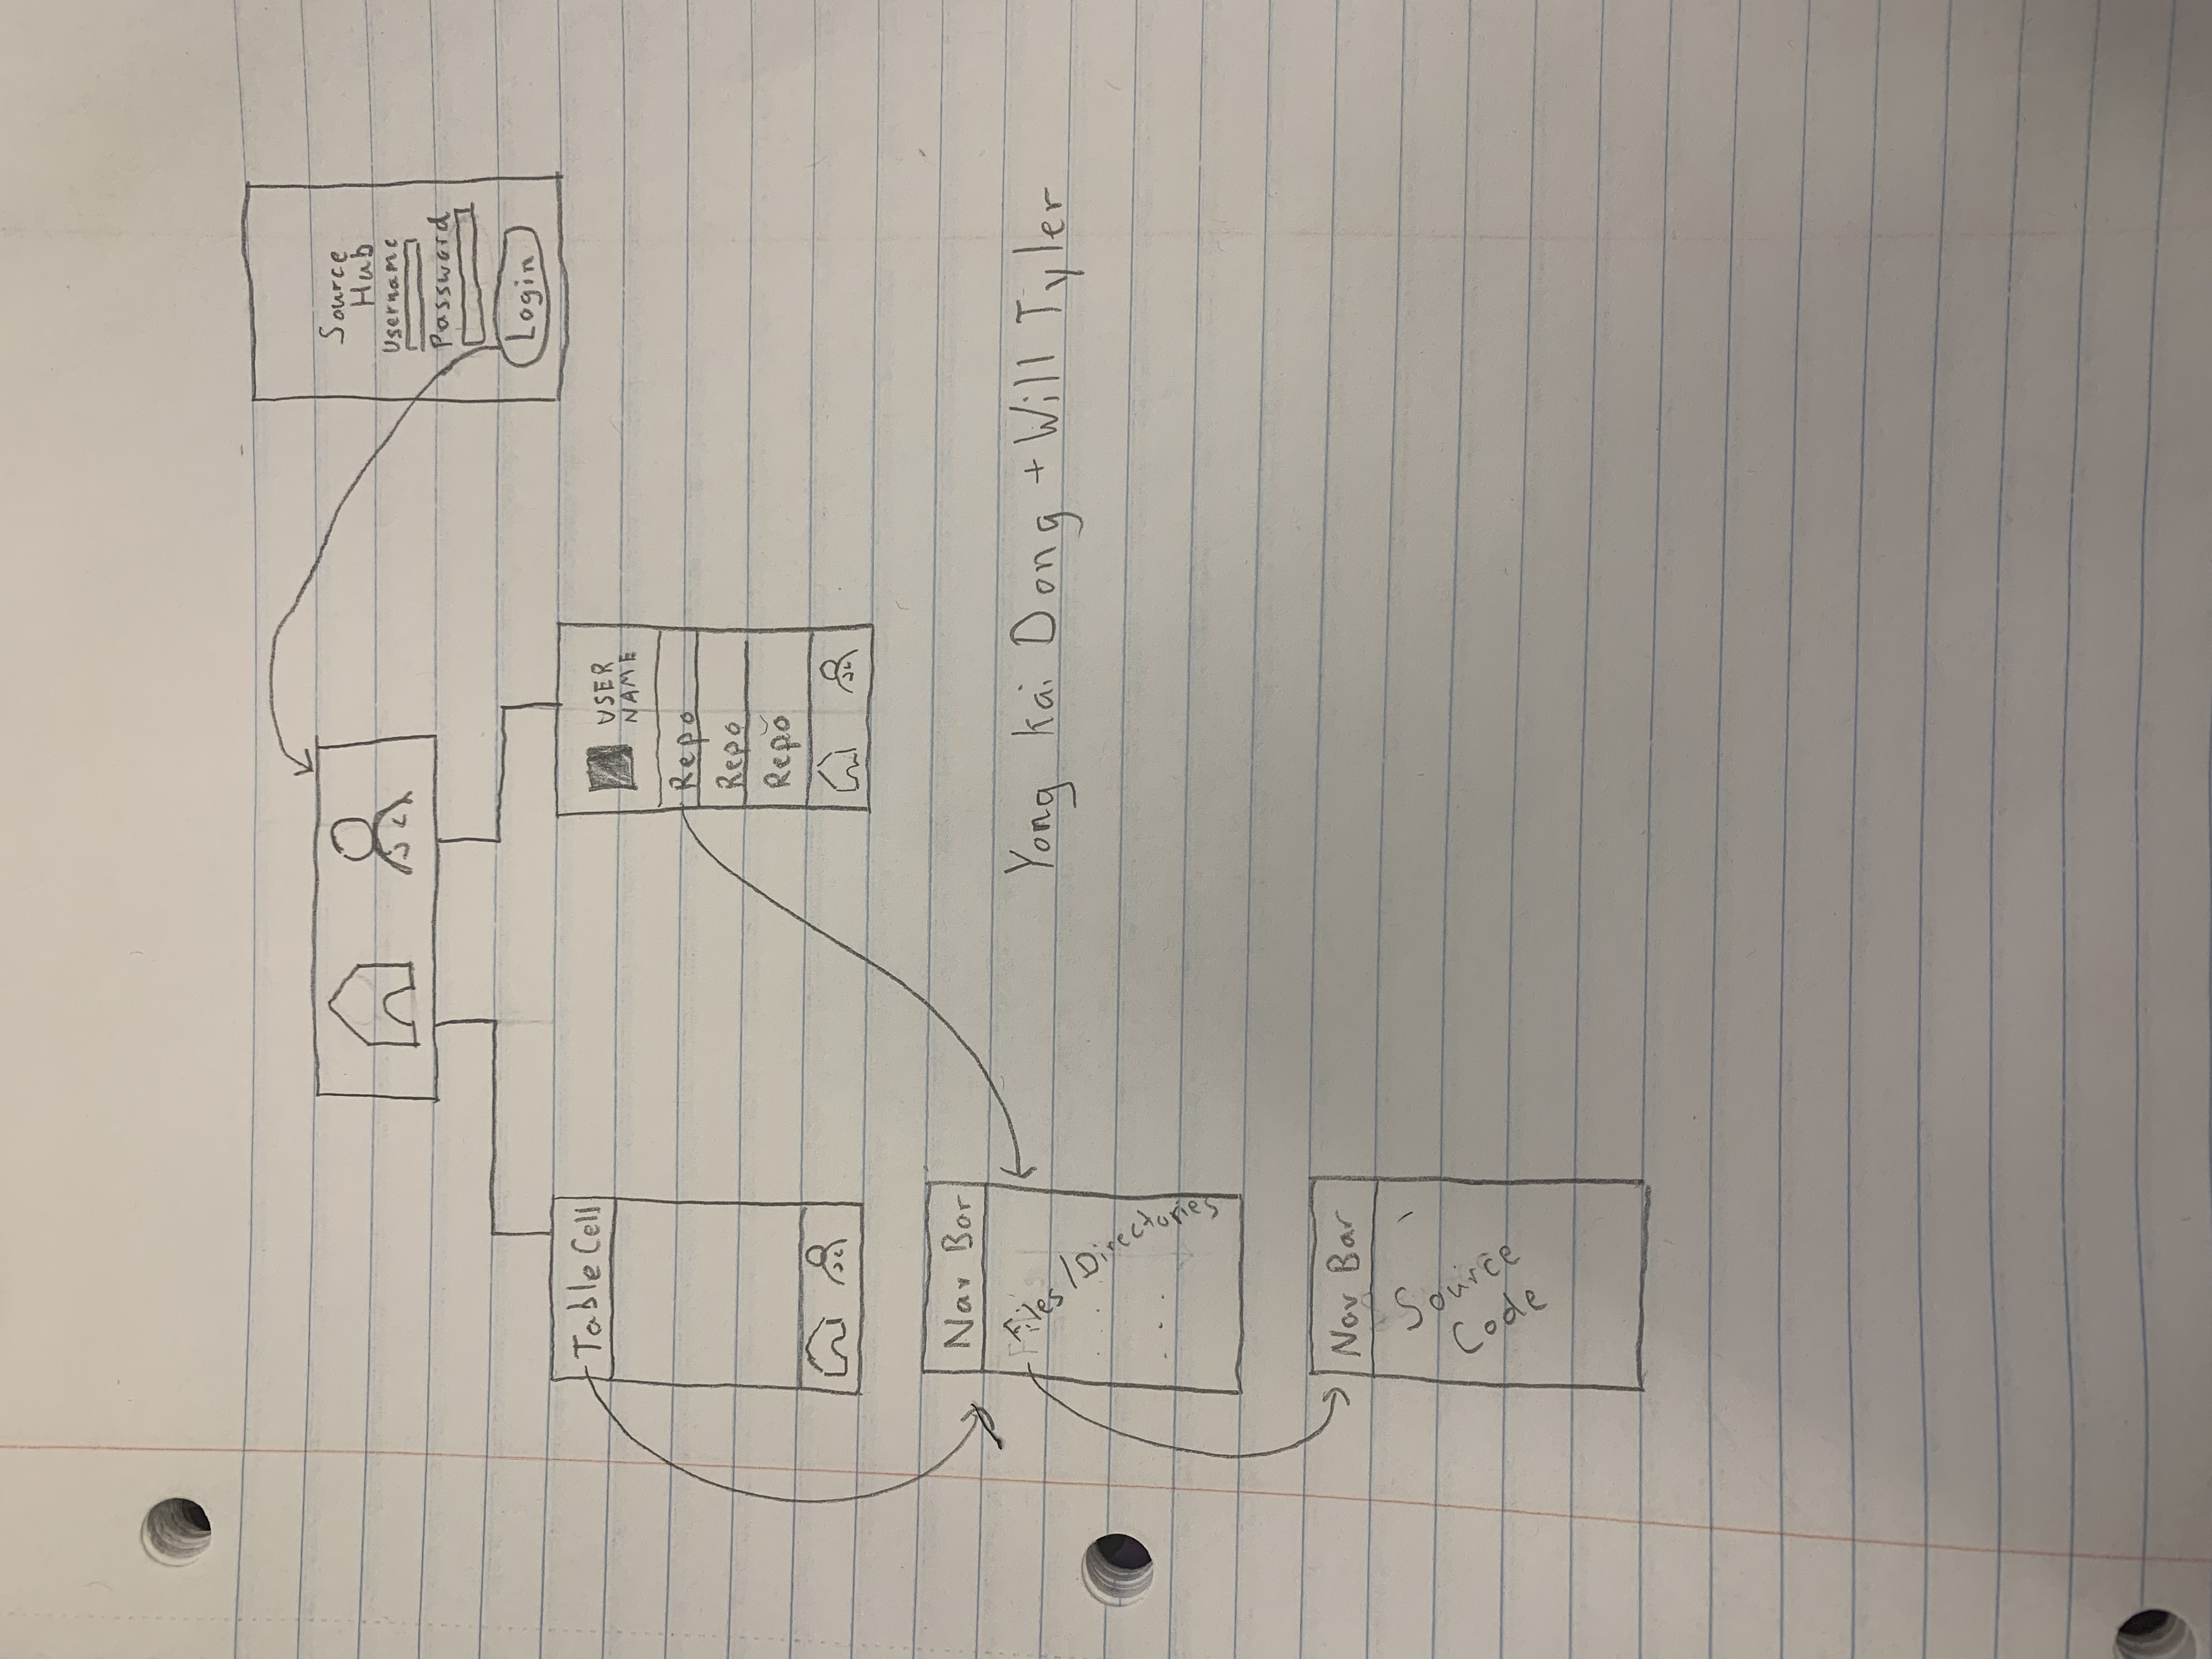 Source
Hub
Username
Password
Login
Table Cell
USER
NAME
Repo
Repo
Repo
Nav Bar
Files/Directories
Yong Kai Dong + Will Tyler
Nav Bar
Source
Code